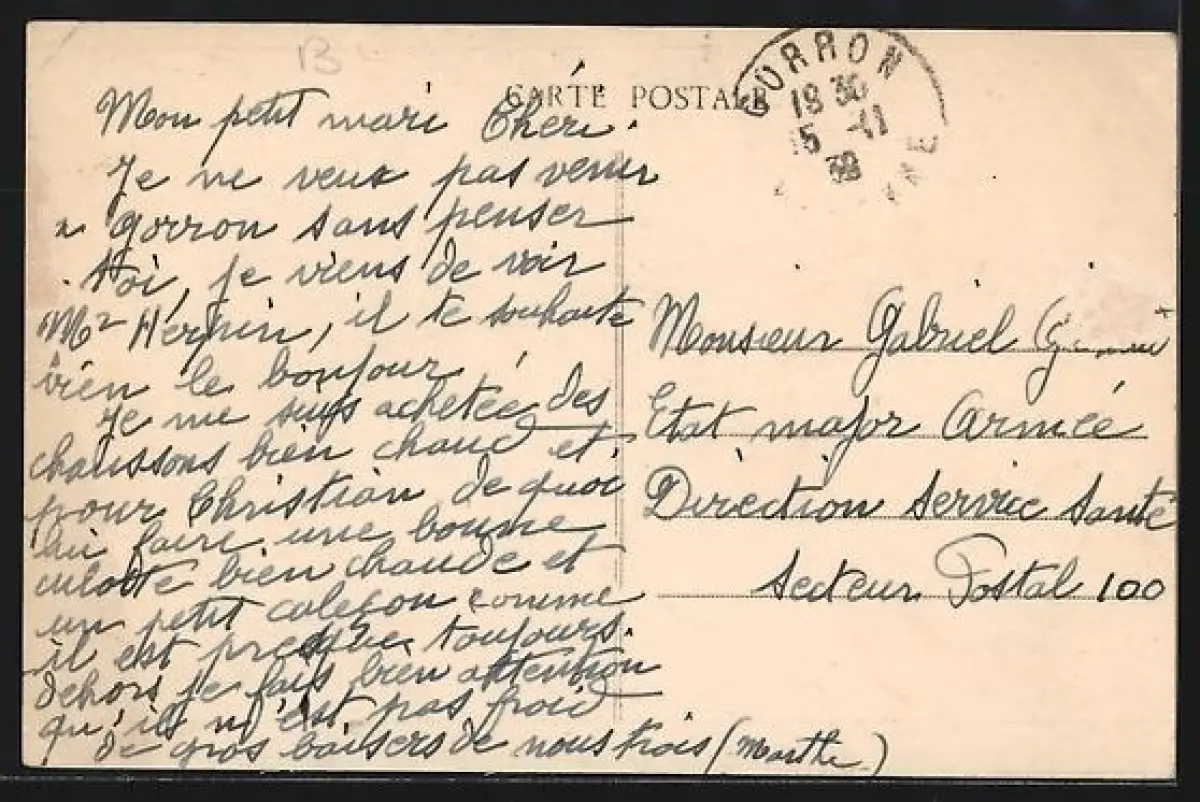 B
CARTE POSTALE
GORRON
19 30
15 -11
39
NE
Mon petit mari Cheri.
Je ne veux pas venir
a gorron sans penser
a toi, je viens de voir
Mr , il te souhaite
bien le bonjour
Je me suis achetée des
chaussons bien chaud et
pour Christian de quoi
lui faire une bonne
culotte bien chaude et
un petit caleçon comme
il est presque toujours
dehors je fais bien attention
qu'ils n'est pas froid
de gros baisers de nous trois (Marthe)
Monsieur Gabriel
Etat major Armée
Direction Service Santé
Secteur Postal 100